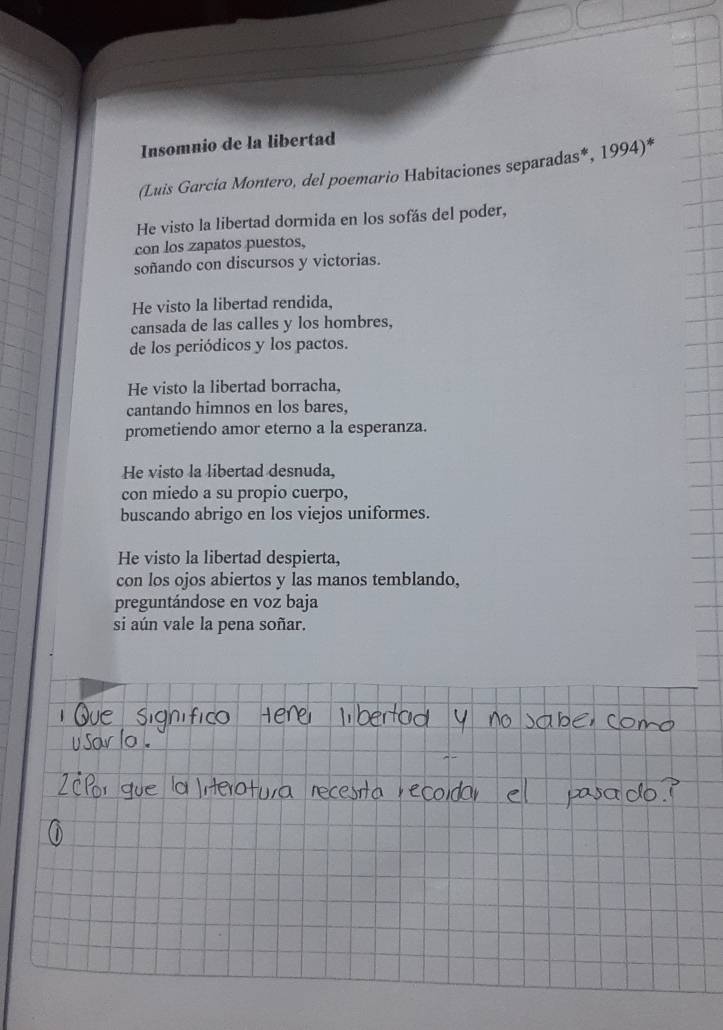 Insomnio de la libertad
(Luis García Montero, del poemario Habitaciones separadas*, 1994)*
He visto la libertad dormida en los sofás del poder,
con los zapatos puestos,
soñando con discursos y victorias.
He visto la libertad rendida,
cansada de las calles y los hombres,
de los periódicos y los pactos.
He visto la libertad borracha,
cantando himnos en los bares,
prometiendo amor eterno a la esperanza.
He visto la libertad desnuda,
con miedo a su propio cuerpo,
buscando abrigo en los viejos uniformes.
He visto la libertad despierta,
con los ojos abiertos y las manos temblando,
preguntándose en voz baja
si aún vale la pena soñar.
1 Que significo tener libertad y no saber como
usarlo.
2 ¿Por que la literatura necesita recordar el pasado?
①